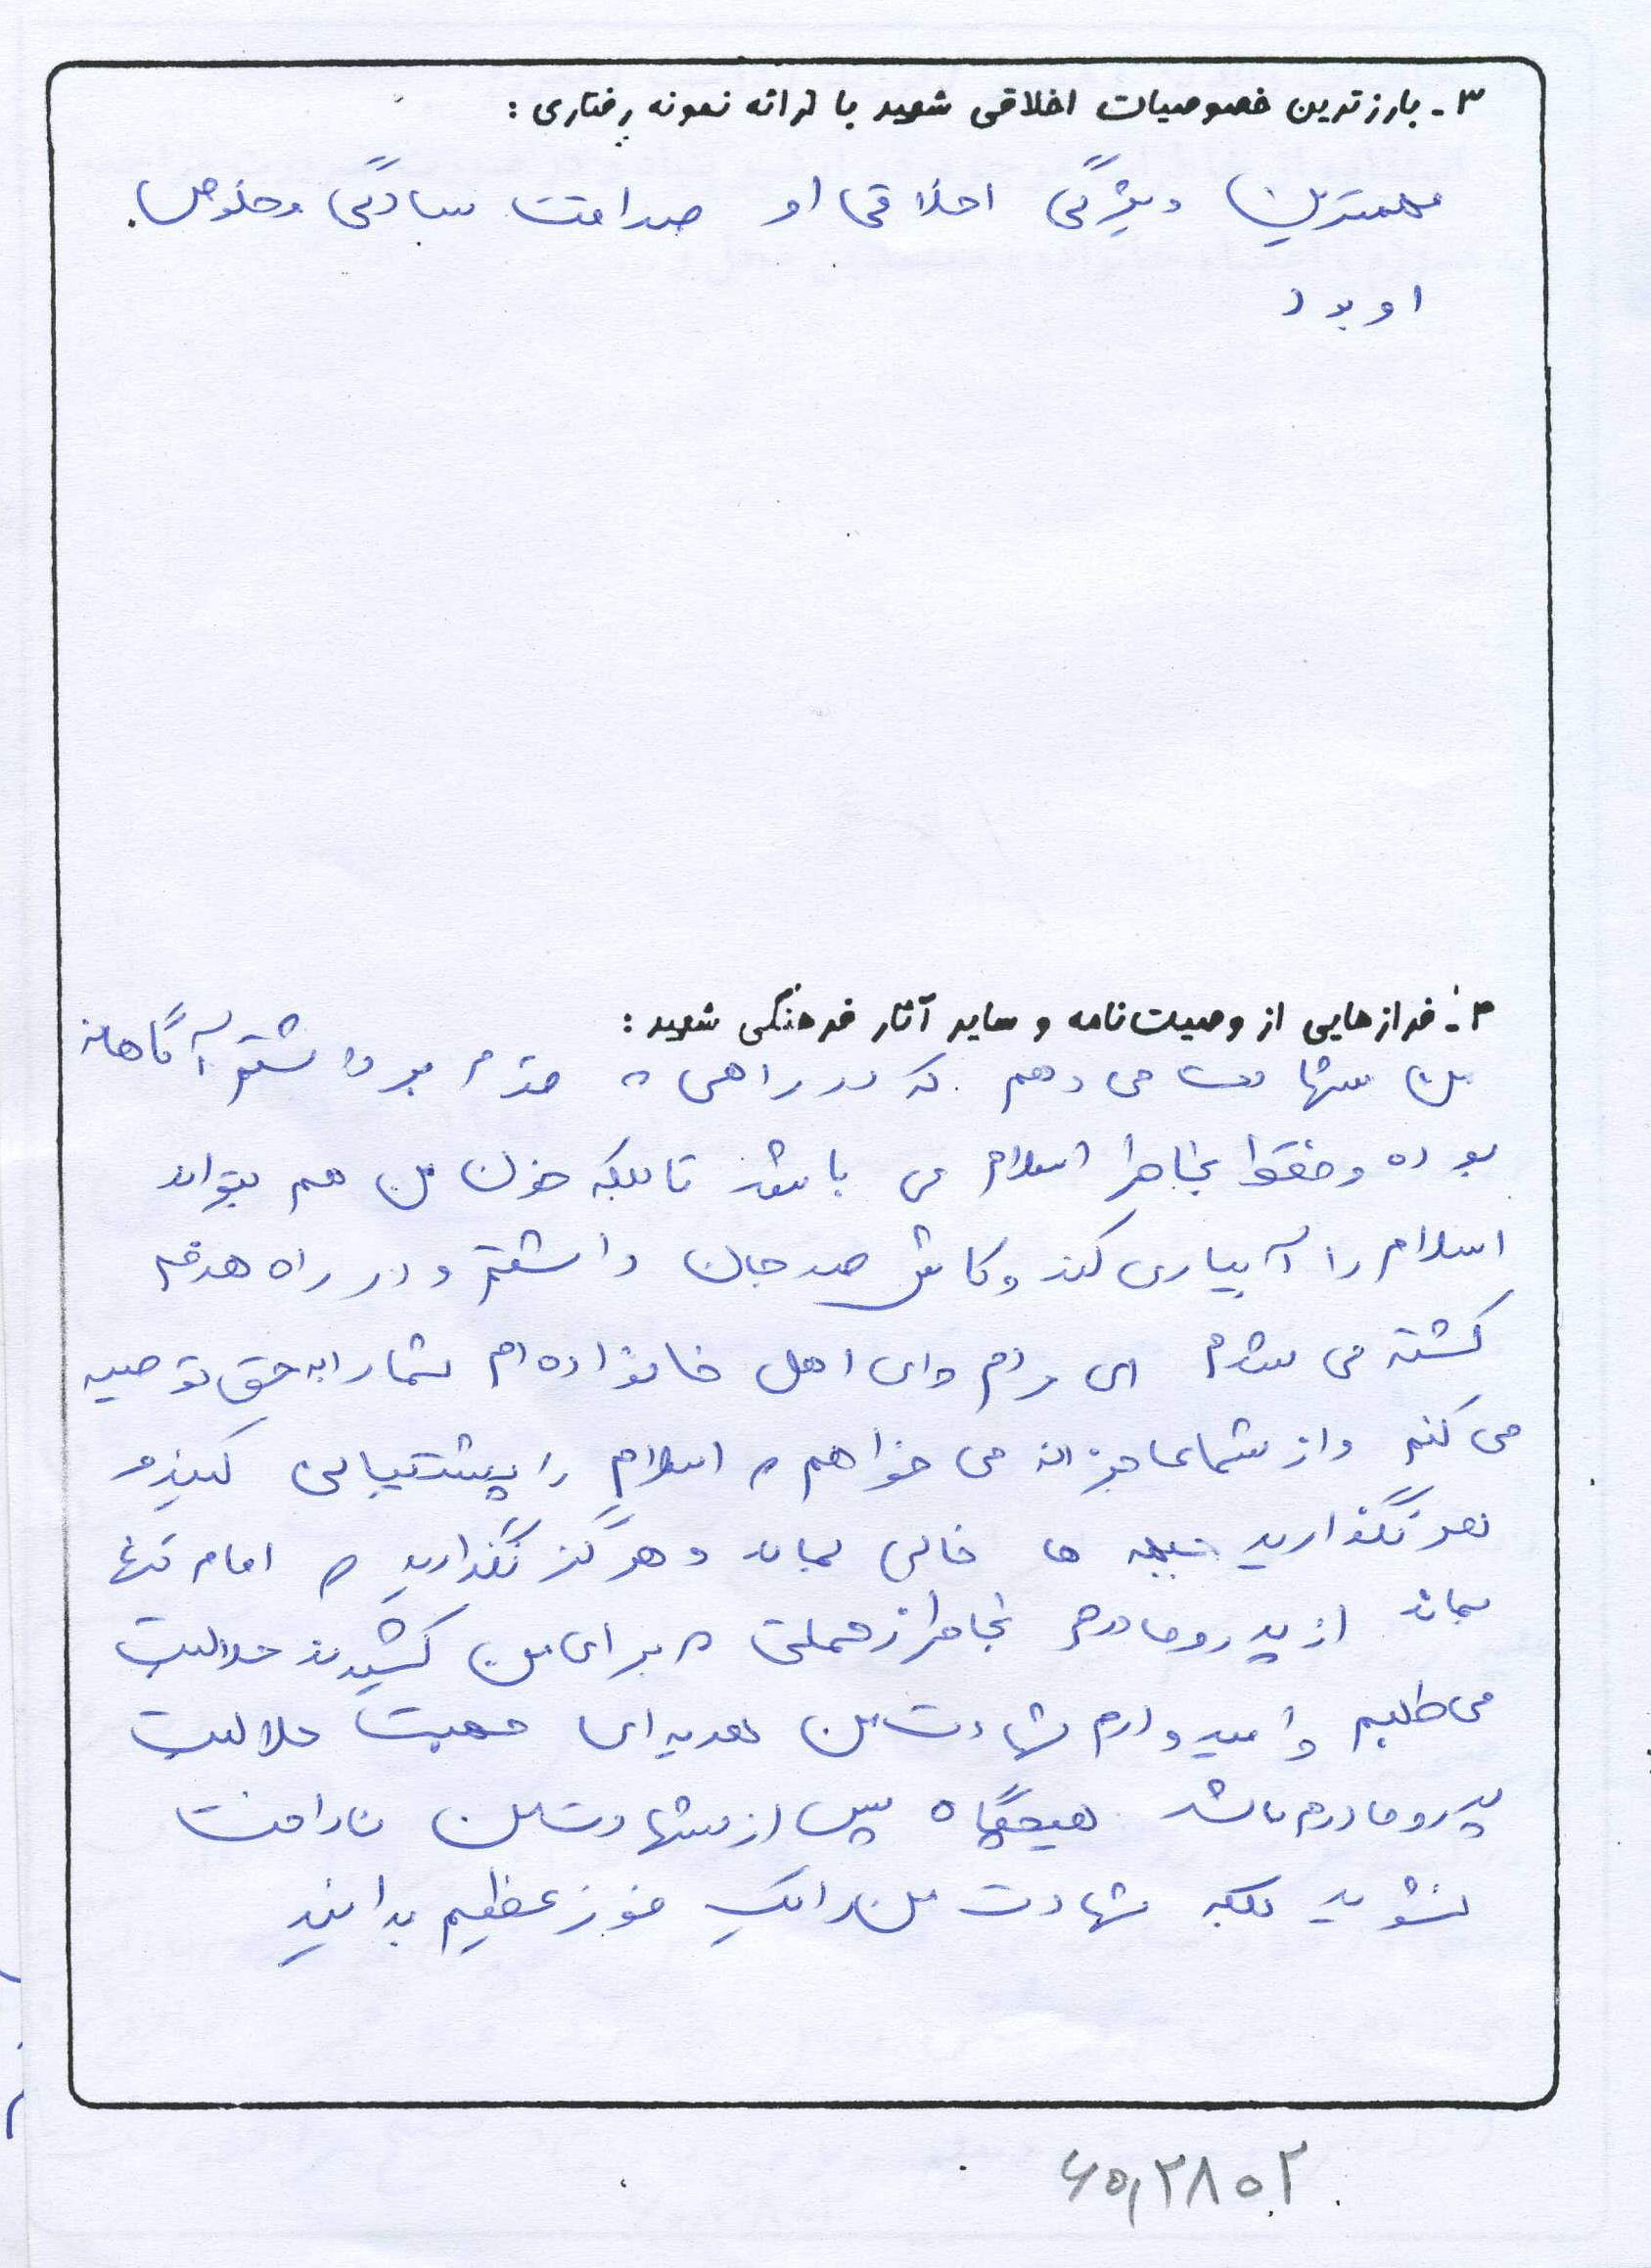 ۳- بارزترین خصوصیات اخلاقی شهید با ارائه نمونه رفتاری :
مهمترین ویژگی اخلاقی او صداقت سادگی و خلوص
او بود
۴- فرازهایی از وصیت‌نامه و سایر آثار فرهنگی شهید :
من شهادت می دهم که در راهی که قدم برداشتم آگاهانه
بوده و فقط بخاطر اسلام می باشد تا بلکه خون من هم بتواند
اسلام را آبیاری کند و کاش صد جان داشتم و در راه هدفم
کشته می شدم ای مردم و ای اهل خانواده ام شما را به حق توصیه
می کنم و از شما عاجزانه می خواهم که اسلام را پشتیبانی کنید و
نگذارید جبهه ها خالی بماند و هرگز نگذارید که امام تنها
بماند از پدر و مادرم بخاطر زحماتی که برای من کشیدند حلالیت
می طلبم و امیدوارم شهادت من هدیه ای جهت حلالیت
پدر و مادرم باشد هیچگاه پس از شهادت من ناراحت
نشوید بلکه شهادت من را یک فوز عظیم بدانید
۶۵,۲۸۰۲